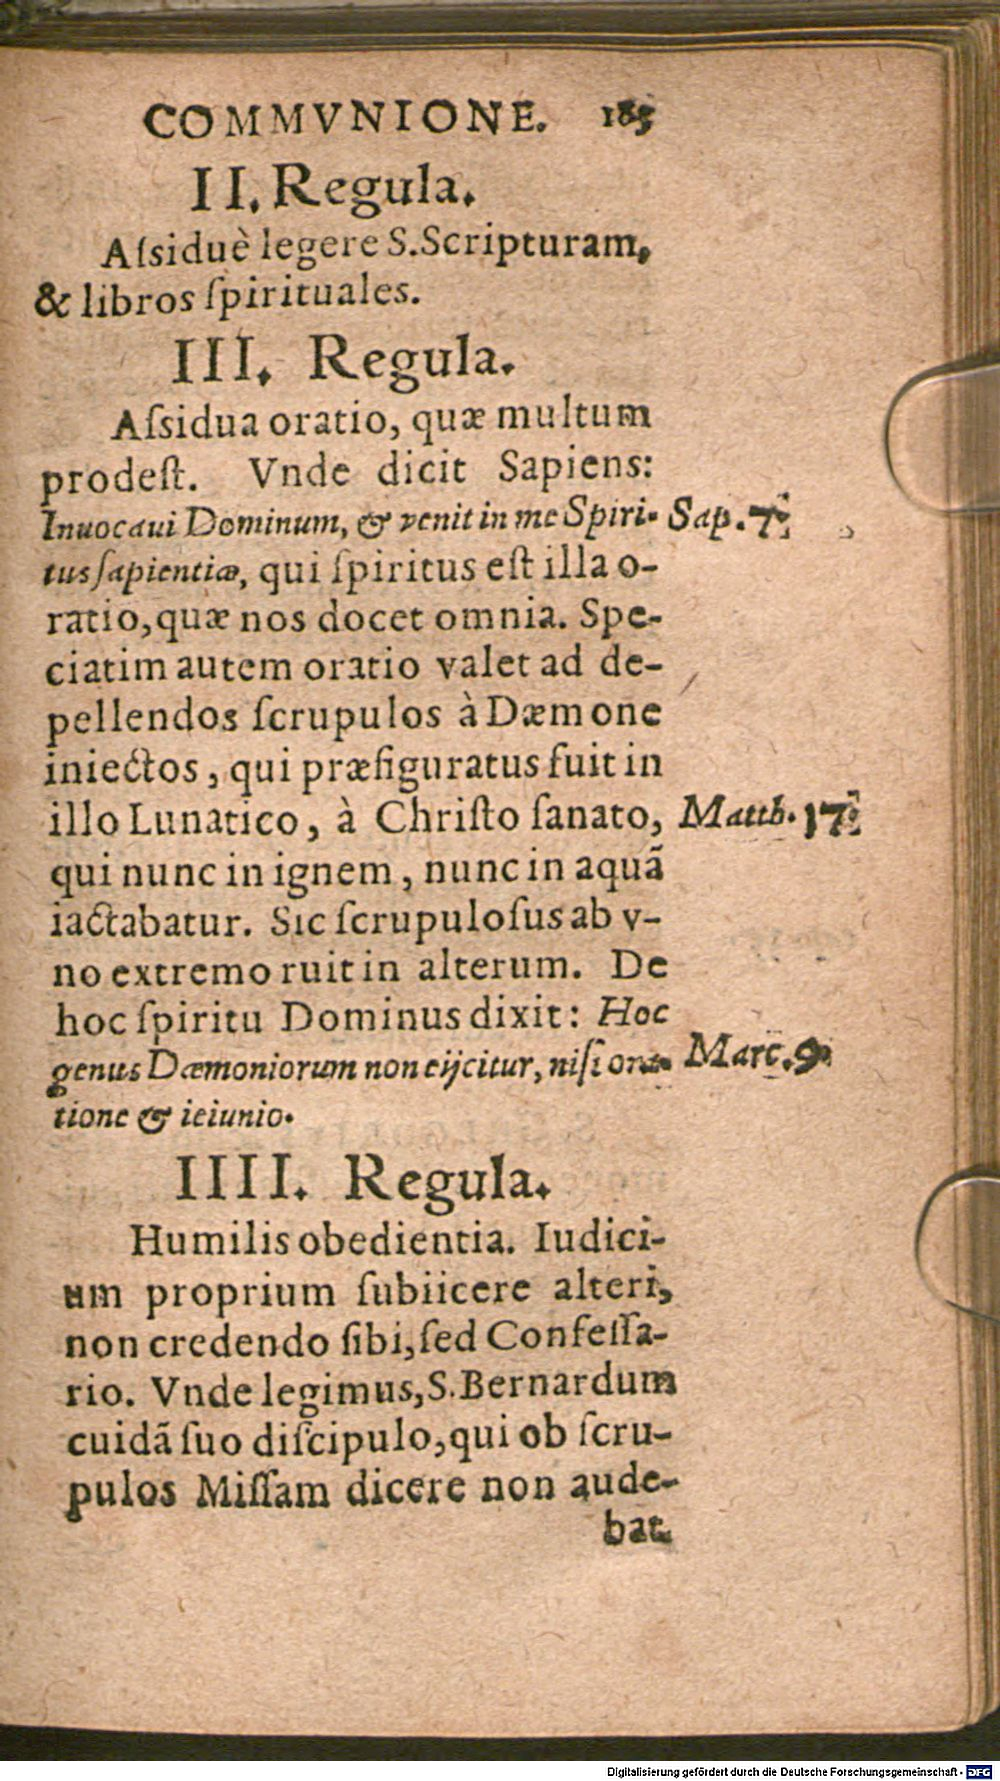 COMMVNIONE. 185
II. Regula.
Aſsiduè legere S. Scripturam,
& libros ſpirituales.
III. Regula.
Aſsidua oratio, quæ multum
prodeſt. Vnde dicit Sapiens:
Inuocaui Dominum, & venit in me Spiri- Sap. 7.
tus ſapientiæ, qui ſpiritus eſt illa o-
ratio, quæ nos docet omnia. Spe-
ciatim autem oratio valet ad de-
pellendos ſcrupulos à Dæmone
iniectos, qui præfiguratus fuit in
illo Lunatico, à Chriſto ſanato, Matth. 17.
qui nunc in ignem, nunc in aquã
iactabatur. Sic ſcrupuloſus ab v-
no extremo ruit in alterum. De
hoc ſpiritu Dominus dixit: Hoc
genus Dæmoniorum non eijcitur, niſi ora- Marc. 9.
tione & ieiunio.
IIII. Regula.
Humilis obedientia. Iudici-
um proprium ſubiicere alteri,
non credendo ſibi, ſed Confeſſa-
rio. Vnde legimus, S. Bernardum
cuidã ſuo diſcipulo, qui ob ſcru-
pulos Miſſam dicere non aude-
bat
Digitalisierung gefördert durch die Deutsche Forschungsgemeinschaft - DFG